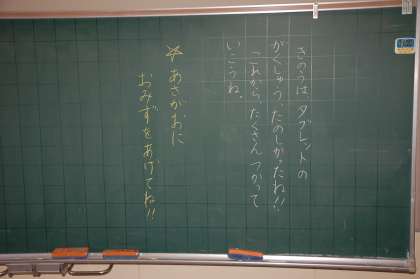 きのうは タブレットの
がくしゅう、たのしかったね!!
これから、たくさん つかって
いこうね。
☆ あさがおに
おみずをあげてね!!